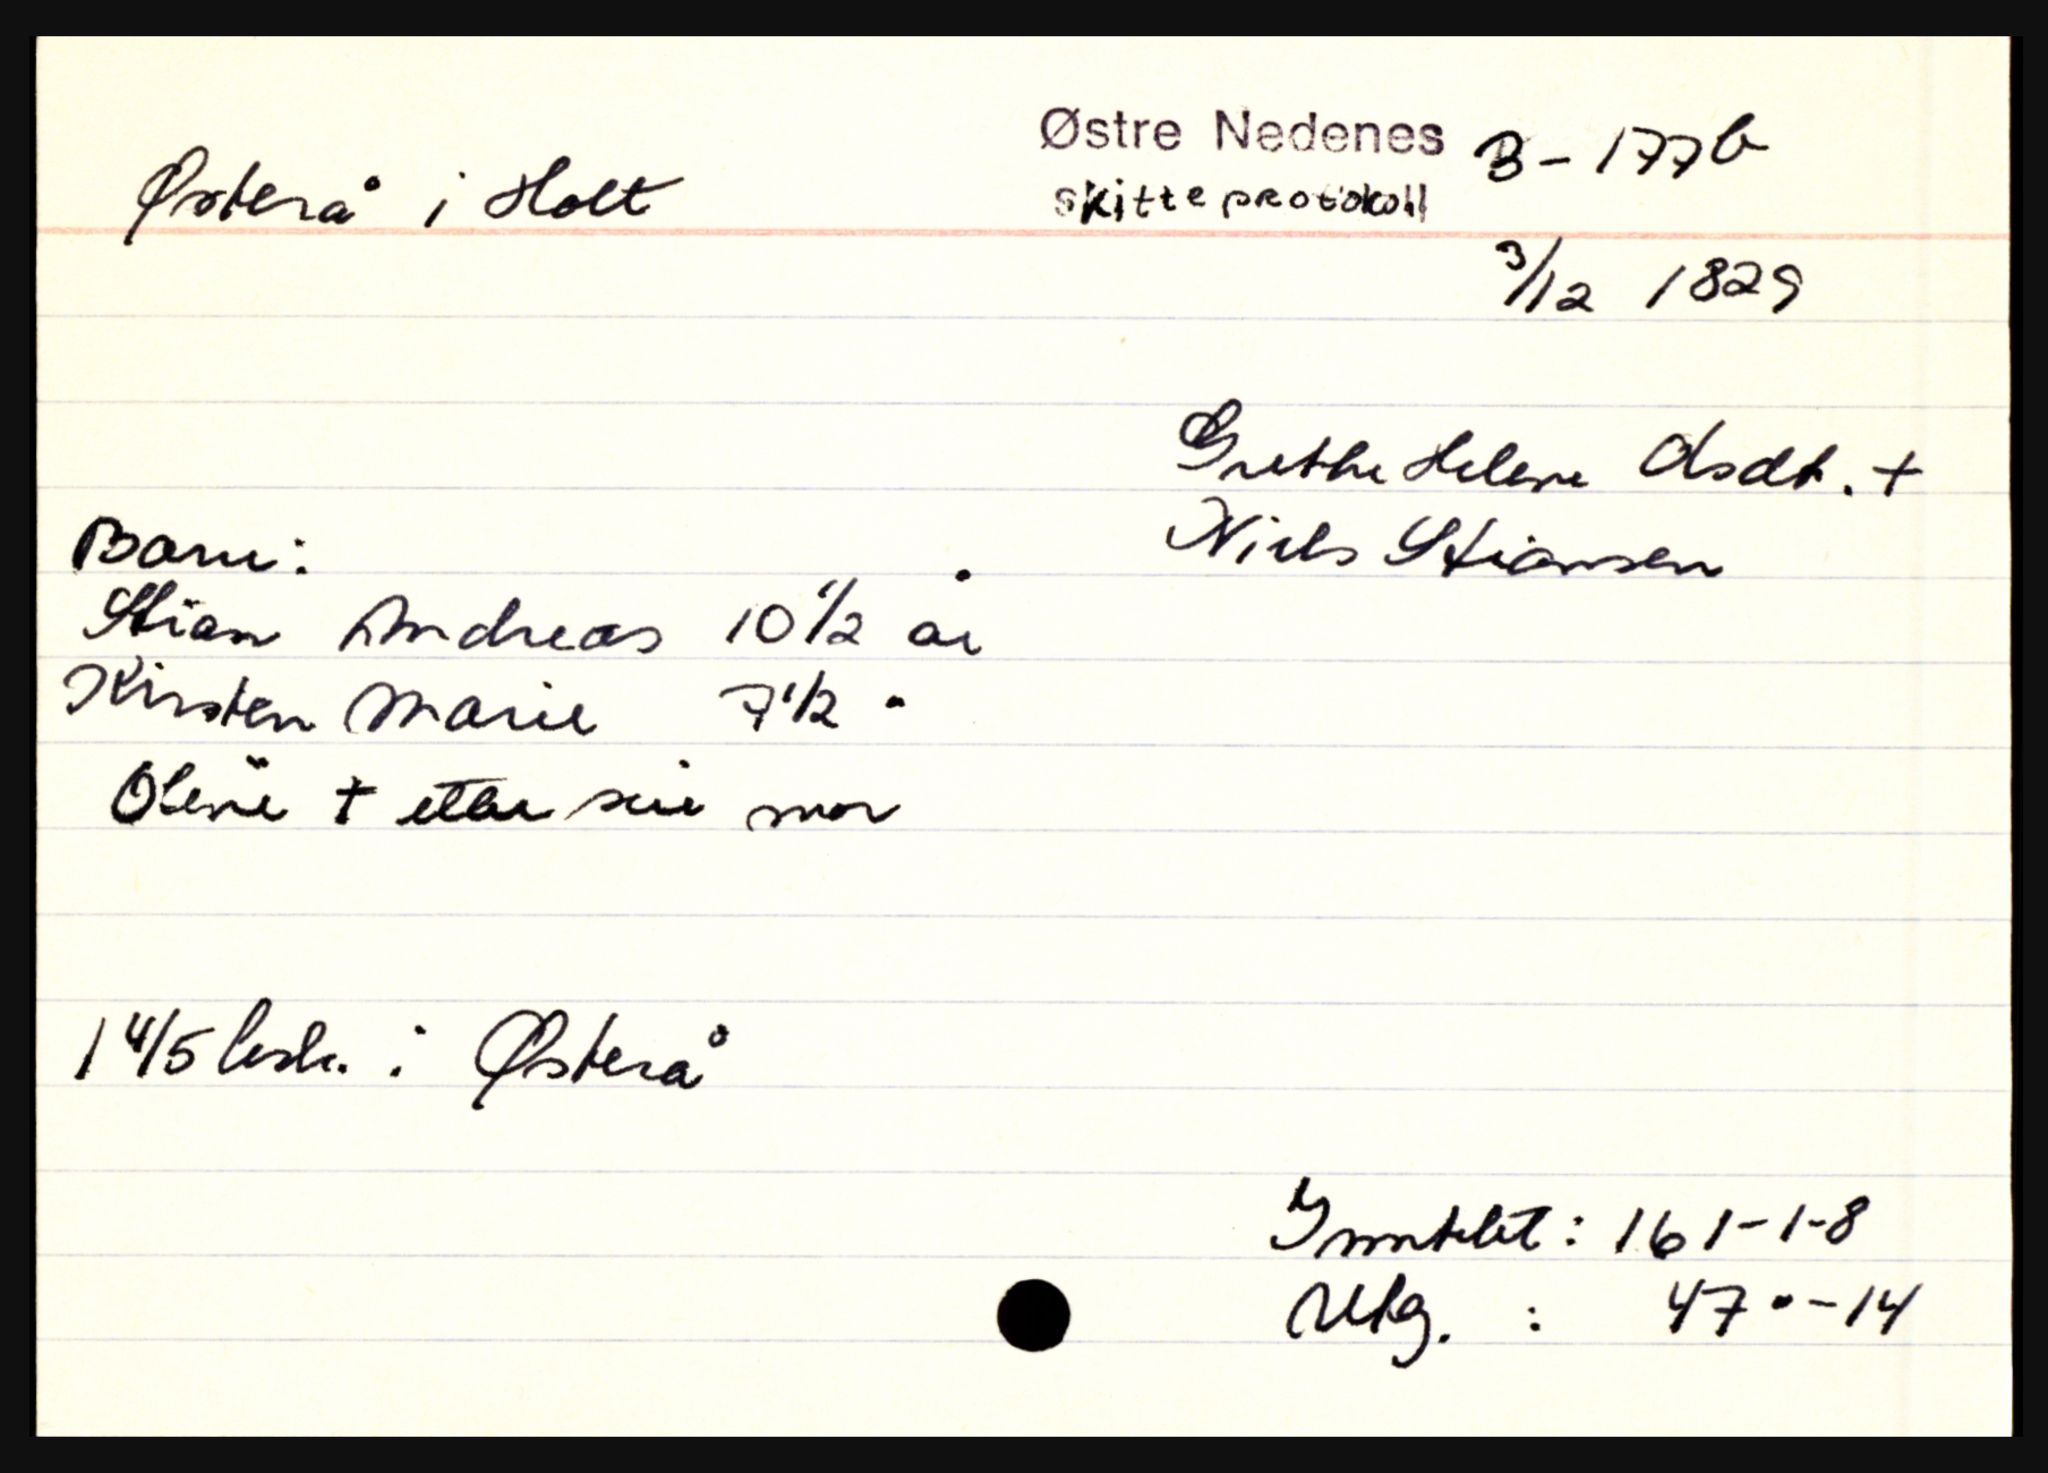 Østre Nedenes B-177b
Østerå i Holt skifteprotokoll
3/12 1829
Grethe Helene Olsdt. +
Niels Stiansen
Barn:
Stian Andreas 10 1/2 år
Kirsten Marie 7 1/2 "
Olene + etter sin mor
1 4/5 besk. i Østerå
Inntekt: 161-1-8
Utg. : 47 "-14